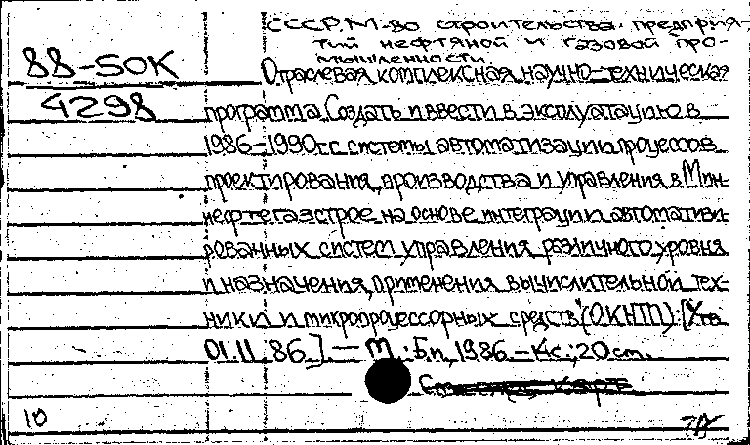 СССР. М-во строительства предприя-
тий нефтяной и газовой про-
мышленности.
88-50К
Отраслевая комплексная научно-техническая
4298
программа „Создать и ввести в эксплуатацию в
1986-1990гг. системы автоматизации процессов
проектирования, производства и управления в Мин-
нефтегазстрое на основе интеграции автоматизи-
рованных систем управления различного уровня
и назначения, применения вычислительной тех-
ники и микропроцессорных средств" (ОКНТП): [Утв.
01.11.86]. — М.: Б.и., 1986. - Кс.; 20 см.
10